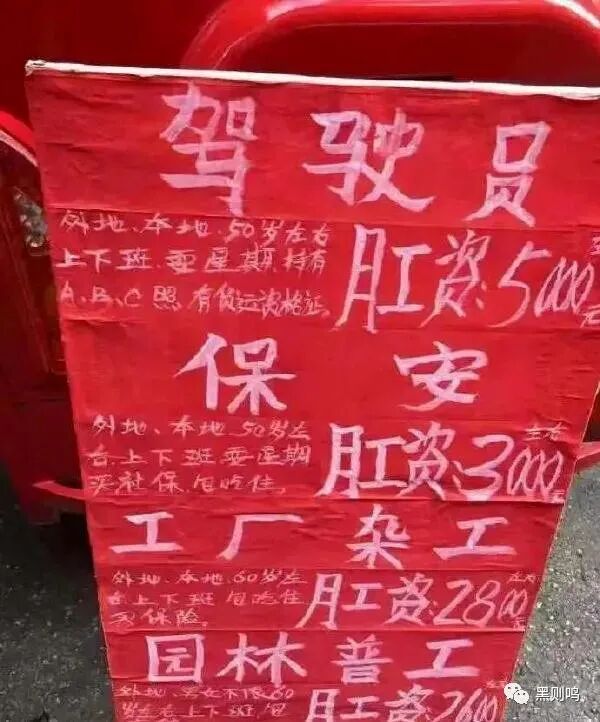 驾驶员
外地、本地、50岁左右
上下班、耍星期、持有
A、B、C照、有货运资格证。
月工资:5000元
保安
外地、本地、50岁左
右、上下班、耍星期
买社保、包吃住。
月工资:3000左右元
工厂杂工
外地、本地、60岁左
右上下班包吃住
买保险。
月工资:2800左右元
园林普工
外地、男女不限60
岁左右上下班、包
月工资:2600左右
黑则鸣